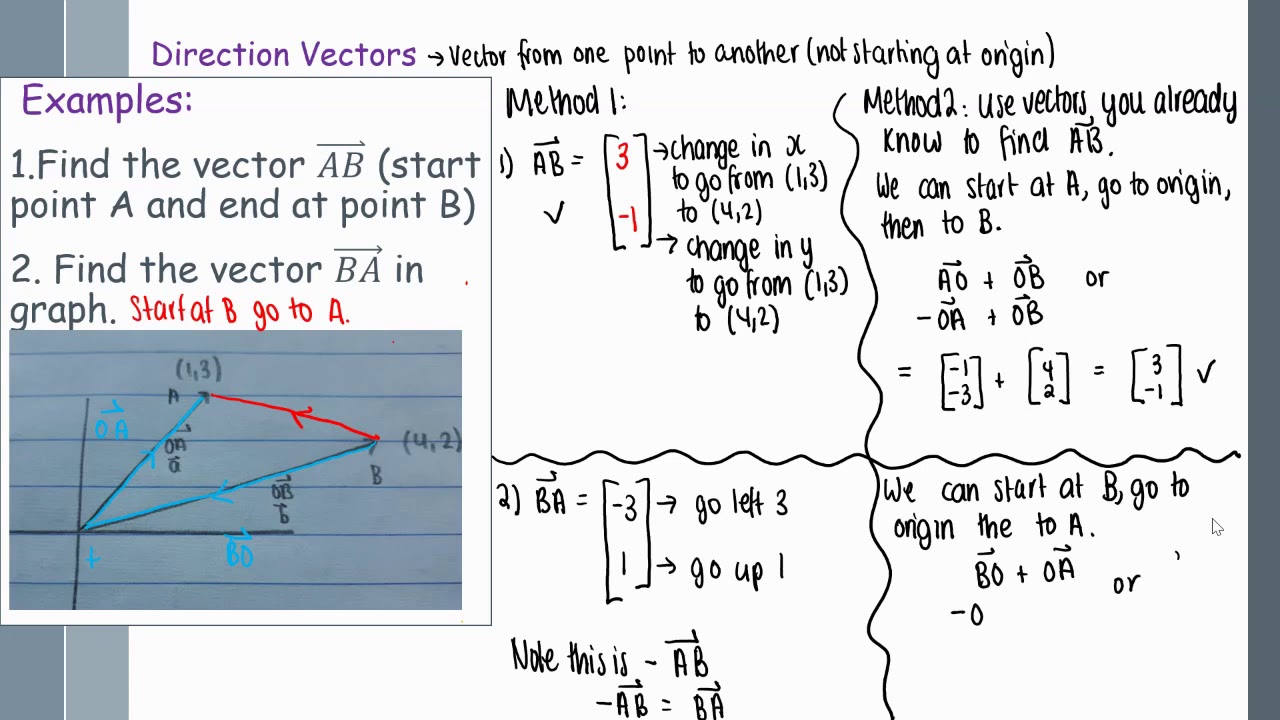 Direction Vectors → Vector from one point to another (not starting at origin)
Examples:
1.Find the vector AB (start
point A and end at point B)
2. Find the vector BA in
graph. Start at B go to A.
(1,3)
A
OA
OA
a
(4,2)
B
OB
b
BO
+
Method 1:
1) AB = [3 -1]
→ change in x
to go from (1,3)
✓
to (4,2)
→ change in y
to go from (1,3)
to (4,2)
Method 2: Use vectors you already
know to find AB.
We can start at A, go to origin,
then to B.
AO + OB or
-OA + OB
= [-1 -3] + [4 2] = [3 -1] ✓
2) BA = [-3 1]
→ go left 3
→ go up 1
Note this is - AB
-AB = BA
We can start at B, go to
origin the to A.
BO + OA or
-O